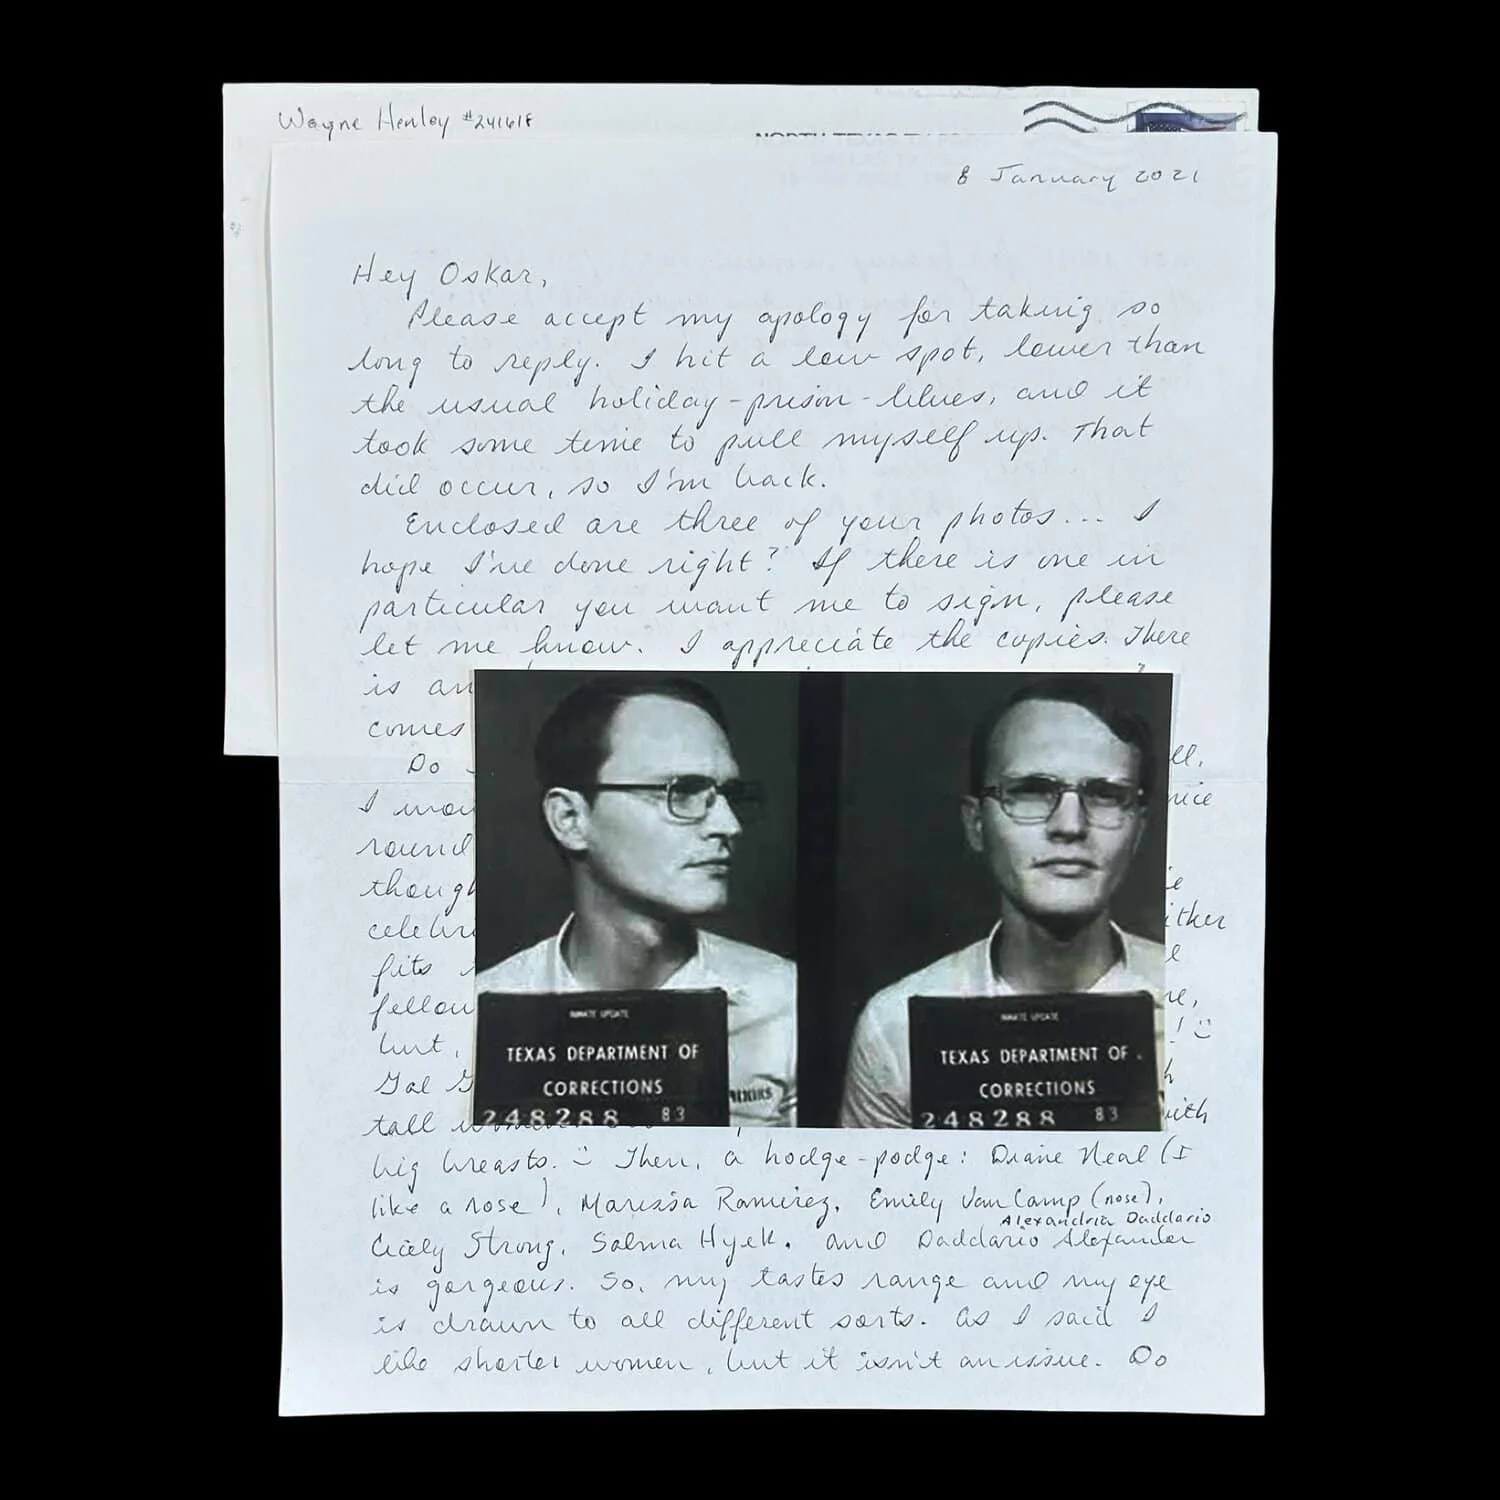 Wayne Henley #241618
NORTH TEXAS
8 January 2021
Hey Oskar,
Please accept my apology for taking so
long to reply. I hit a low spot, lower than
the usual holiday-prison-blues, and it
took some time to pull myself up. That
did occur, so I'm back.
Enclosed are three of your photos... I
hope I've done right? If there is one in
particular you want me to sign, please
let me know. I appreciate the copies. There
is an
comes
Do
I
round
celebri
fits
fellow
but,
Gal G
tall women
with
big breasts. :) Then, a hodge-podge: Diane Neal (I
like a nose), Marissa Ramirez, Emily VanCamp (nose),
Alexandria Daddario
Cicely Strong, Salma Hyek. and Daddario Alexander
is gorgeous. So, my tastes range and my eye
is drawn to all different sorts. As I said I
like shorter women, but it isn't an issue. Do
INMATE UPDATE
TEXAS DEPARTMENT OF
CORRECTIONS
248288 83
INMATE UPDATE
TEXAS DEPARTMENT OF
CORRECTIONS
248288 83